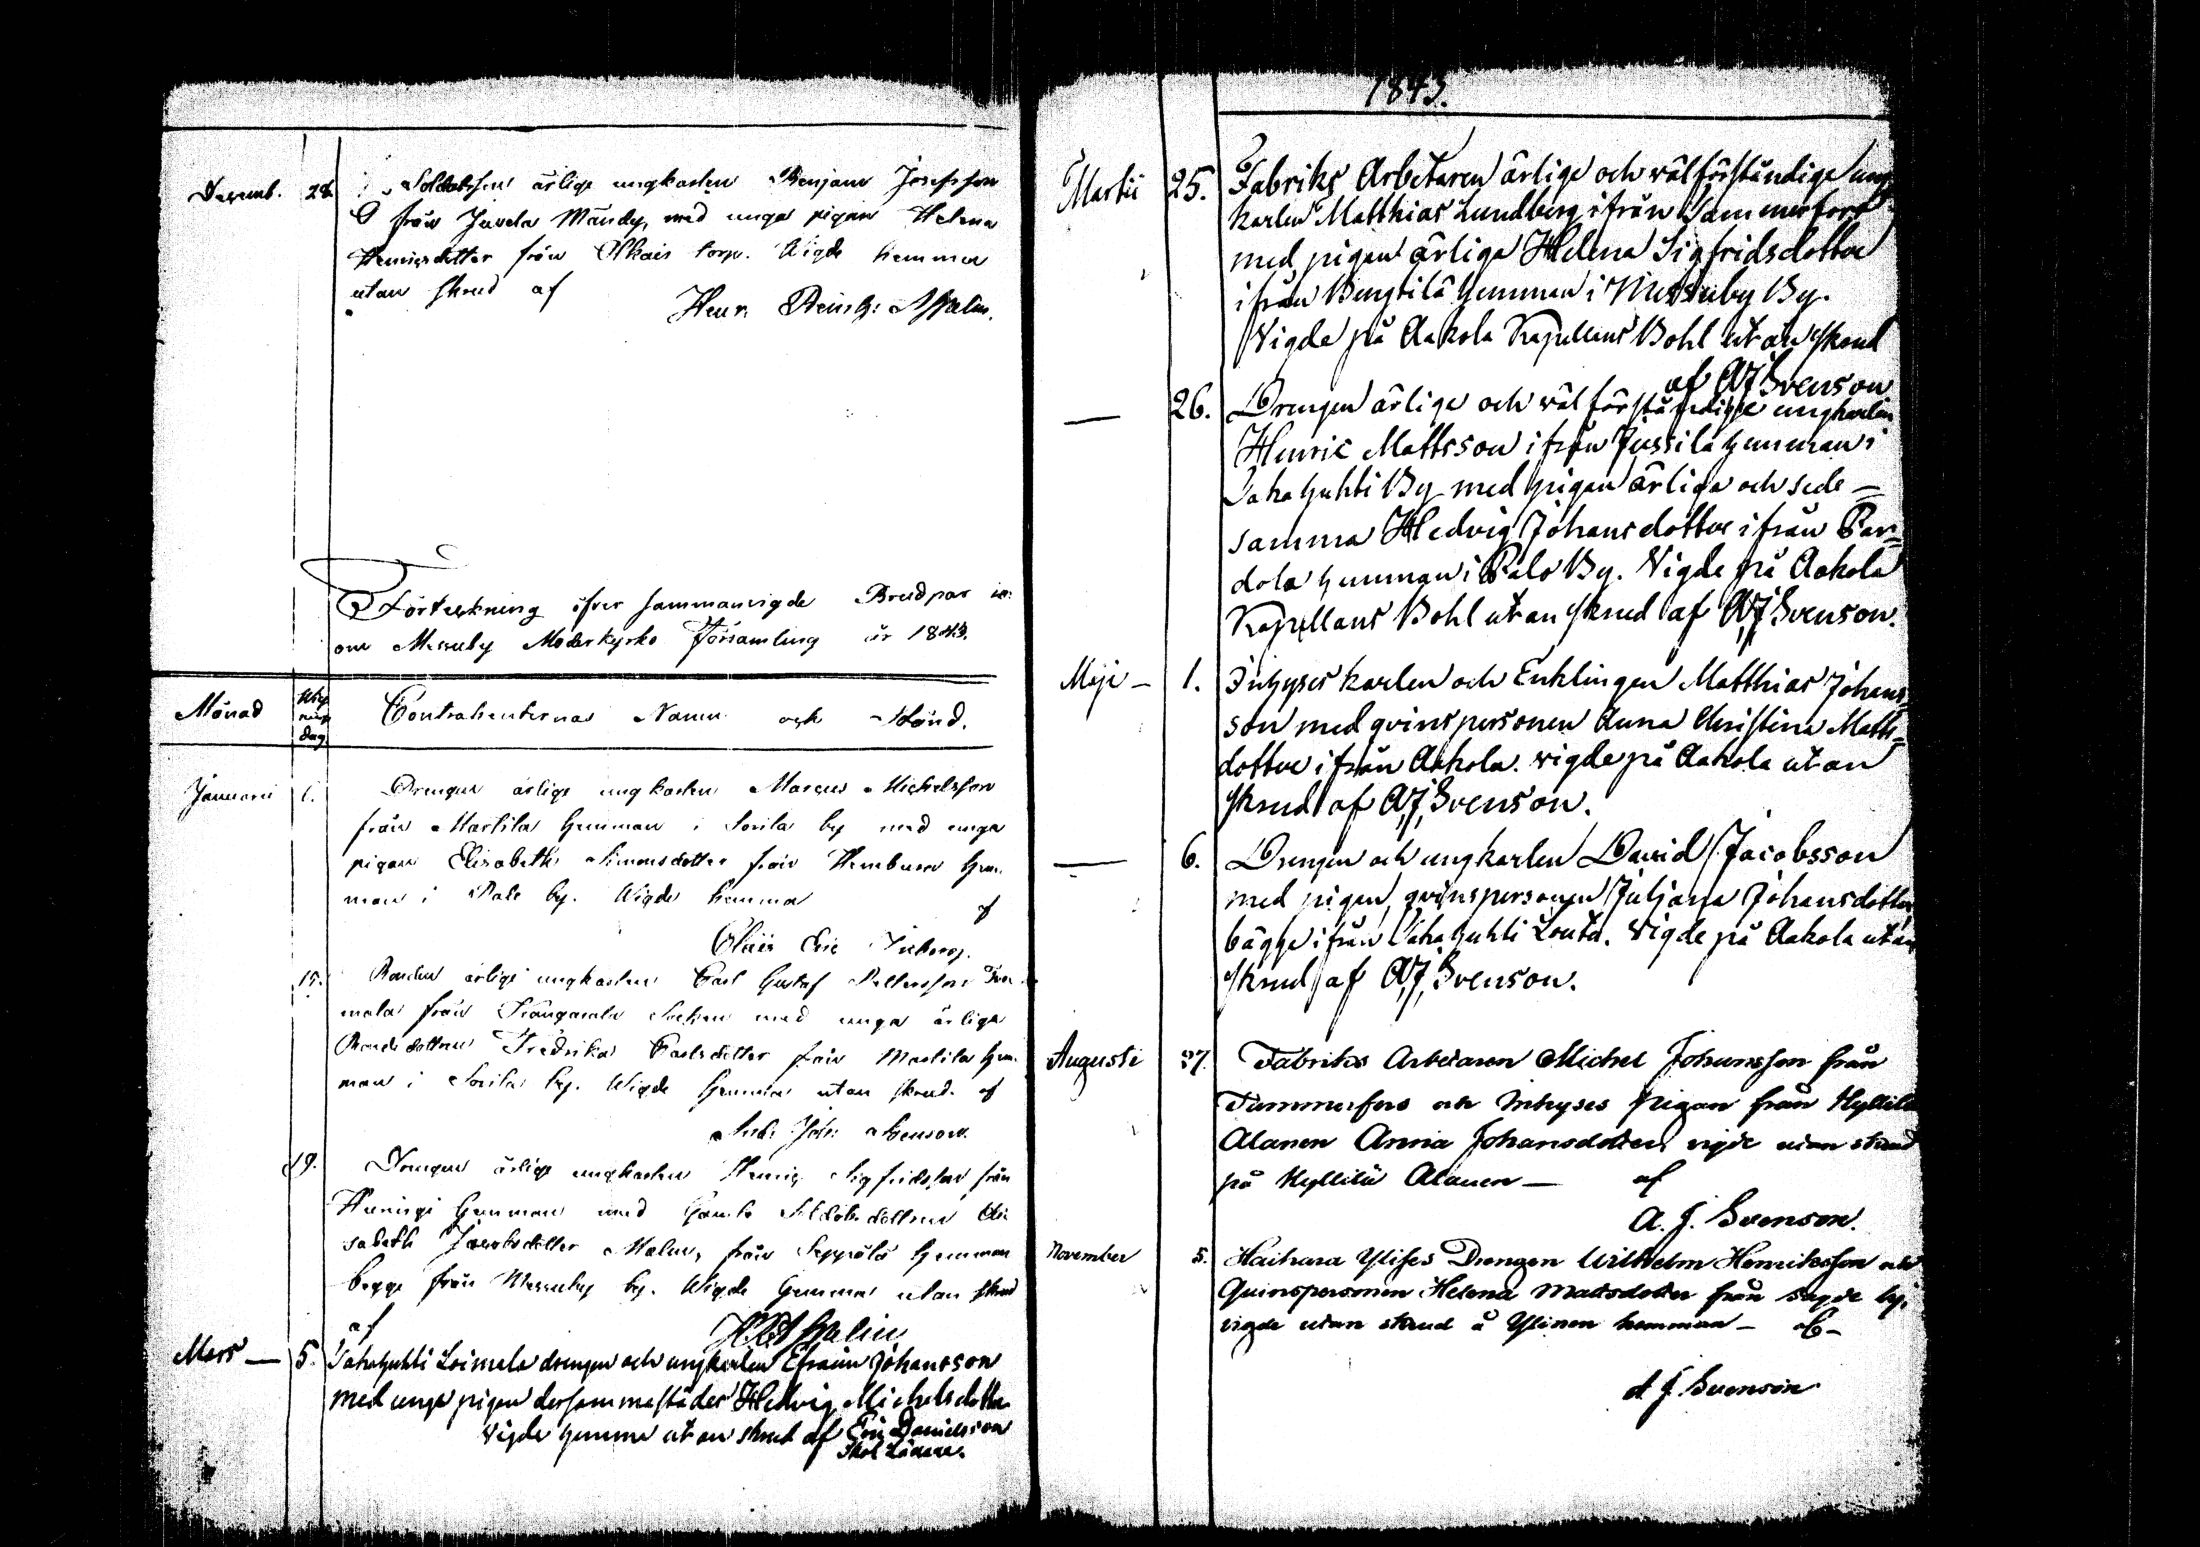 Decemb. 28. Soldatsson ärlige ungkarlen Benjam Josefsson
från Juvela Mändy, med unga pigan Helena
Henricsdotter från torp. Wigde hemma
utan skrud af
Henr. Heinr: A Malm.
Förteckning öfver sammanvigde Brudpar in-
om Messuby Moderkyrko Församling år 1843.
Månad Wig nings dag Contrahenternas Namn och Stånd.
Januarii 6. Drengen ärlige ungkarlen Marcus Michelsson
från Martila hemman i Sorila by med unga
pigan Elisabeth Simonsdotter från hem-
man i Palo by. Wigde hemma af
Eric
15. Bonden ärlige ungkarlen Carl Gustaf Pettersson
mola från Kangasala Sochen med unga ärliga
Bondedottren Fredrika Carlsdotter från Martila hem-
man i Sorila by. Wigde hemma utan skrud af
Joh: Svenson.
29. Drengen ärlige ungkarlen Henric Sigfridsson från
Hemingi hemman med Gamle Soldats dottren Eli
sabeth Jacobsdotter Malm, från Seppälä hemman
begge från Messuby by. Wigde hemma utan skrud
af
Malin
Mars — 5. Takahuhti Loimela drengen och ungkarlen Efraim Johansson
med unga pigan dersammastädes Hedvig Michelsdotter
vigde hemma utan skrud af Eric Danielsson
Skol Lärare.
1843.
Martii 25. Fabriks Arbetaren ärlige och välförståndige ung
karlen Matthias Lundberg ifrån Tammerfors
med pigan ärliga Helena Sigfridsdotter
ifrån Bengtilä hemman i Messuby By.
Vigde på Aakola Kapellans Bohl utan skrud
af A,J,Svenson
— 26. Drengen ärlige och välförståndige ungkarlen
Henric Mattsson ifrån Jussila hemman i
Takahuhti By med pigan ärliga och sede =
samma Hedvig Johansdotter ifrån Par=
dola hemman i Palo By. Vigde på Aakola
Kapellans Bohl utan skrud af A,J,Svenson.
Maji — 1. Inhyses karlen och Enklingen Matthias Johans=
son med qvinspersonen Anna Christina Matts=
dotter ifrån Aakola. vigde på Aakola utan
skrud af A,J,Svenson.
— 6. Drengen och ungkarlen David Jacobsson
med pigan, qvinspersonen Juljana Johansdotter,
bägge ifrån Takahuhti Louta. Vigde på Aakola utan
skrud af A,J,Svenson.
Augusti 27. Fabriks Arbetaren Michel Johansson från
Tammerfors och Inhyses pigan från Hyllilä
Alanen Anna Johansdotter, vigde utan skrud
på Hyllilä Alanen — af
A. J. Svenson.
November 5. Haihara Ylises Drengen Wilhelm Henriksson och
Quinspersonen Helena Matsdotter från sagde by,
vigde utan skrud å Ylinen hemman — af —
A J. Svenson